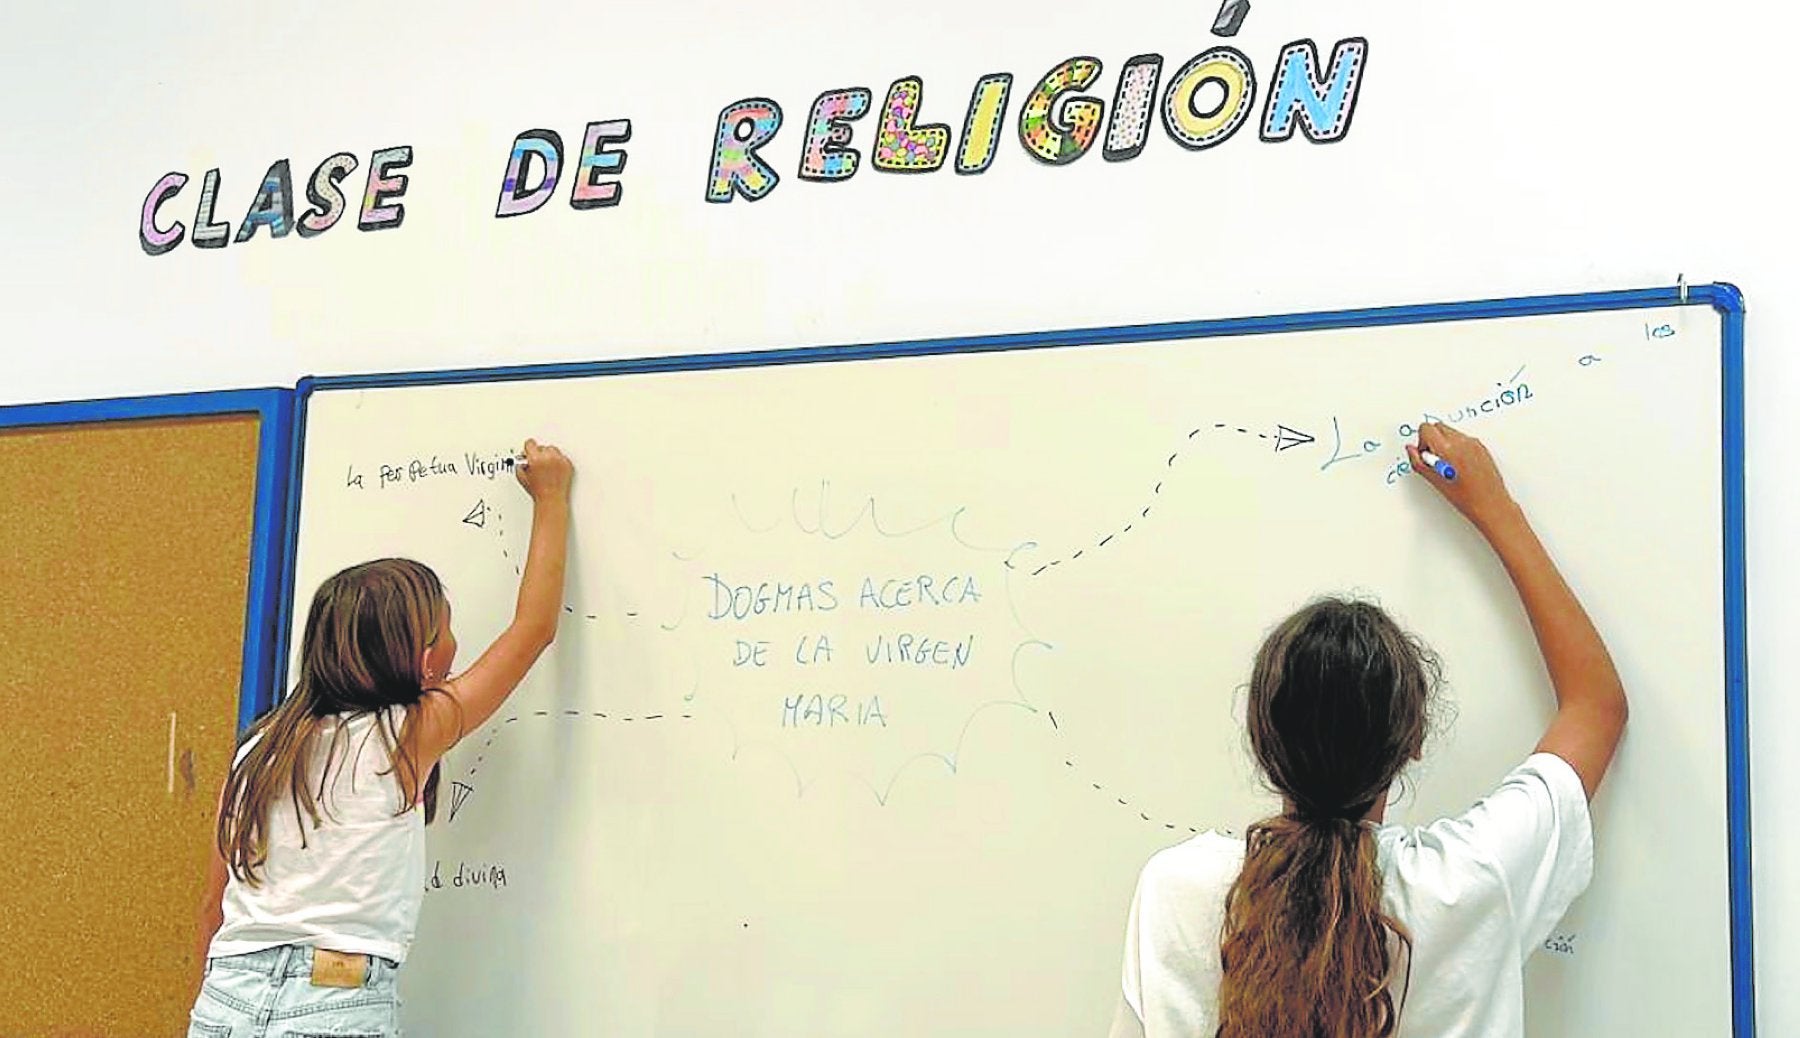 CLASE DE RELIGIÓN
La perpetua Virgini
La anunción a los
cie
DOGMAS ACERCA
DE LA VIRGEN
MARIA
d divina
ción